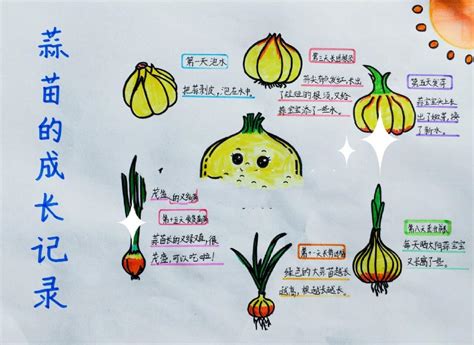 蒜苗的成长记录
第一天泡水
把蒜剥皮，泡在水中。
第三天长出根须
蒜头有点发红，长出
了短短的根须，又给
蒜宝宝添了一些水。
第五天发芽
蒜宝宝头上长
出了嫩芽，换
了新水。
第八天
每天晒太阳蒜宝宝
又长高了一些。
第十一天
绿色的大蒜苗越长
越高，根越长越长。
第十五天
蒜苗长的又绿又直，很
茂盛，可以吃啦！